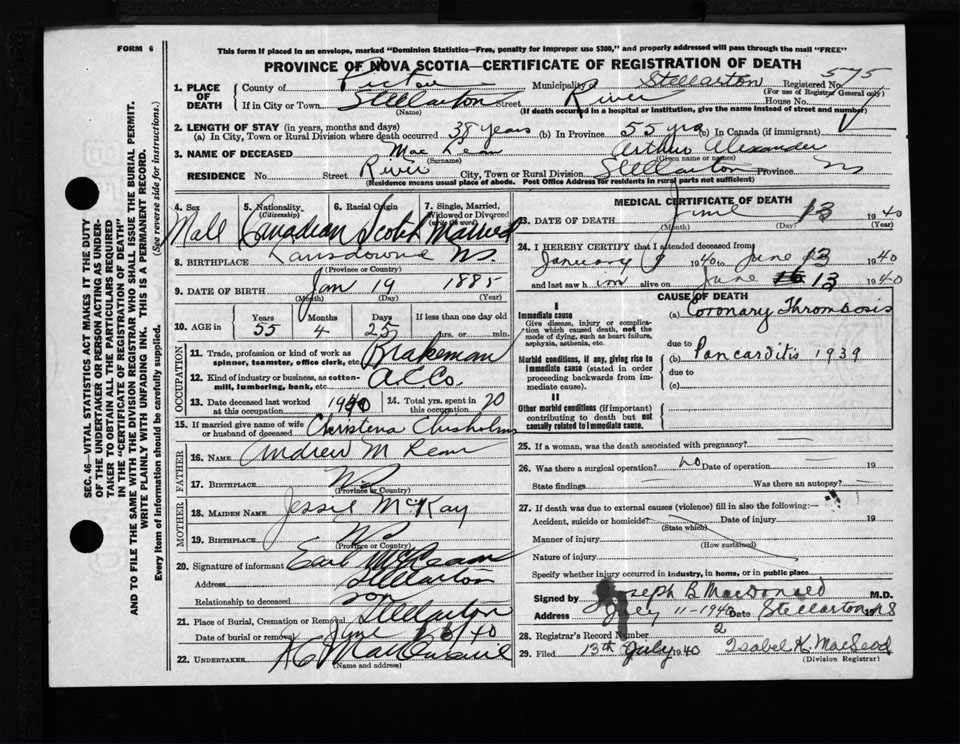 FORM 6
This form if placed in an envelope, marked "Dominion Statistics—Free, penalty for improper use $300," and properly addressed will pass through the mail "FREE"
PROVINCE OF NOVA SCOTIA—CERTIFICATE OF REGISTRATION OF DEATH
SEC. 46—VITAL STATISTICS ACT MAKES IT THE DUTY
OF THE UNDERTAKER OR PERSON ACTING AS UNDER-
TAKER TO OBTAIN ALL THE PARTICULARS REQUIRED
IN THE "CERTIFICATE OF REGISTRATION OF DEATH"
AND TO FILE THE SAME WITH THE DIVISION REGISTRAR WHO SHALL ISSUE THE BURIAL PERMIT.
WRITE PLAINLY WITH UNFADING INK. THIS IS A PERMANENT RECORD.
Every item of information should be carefully supplied. (See reverse side for instructions.)
1. PLACE OF DEATH County of Pictou Municipality of Stellarton Registered No. 575
(For use of Registrar General only)
If in City or Town Stellarton Street River House No.
(Name) (If death occurred in a hospital or institution, give the name instead of street and number)
2. LENGTH OF STAY (in years, months and days)
(a) In City, Town or Rural Division where death occurred 38 years (b) In Province 55 yrs (c) In Canada (if immigrant)
3. NAME OF DECEASED Mac Lean Arthur Alexander
(Surname) (Given name or names)
RESIDENCE No. Street River City, Town or Rural Division Stellarton Province NS
(Residence means usual place of abode. Post Office Address for residents in rural parts not sufficient)
4. Sex 5. Nationality (Citizenship) 6. Racial Origin 7. Single, Married, Widowed or Divorced
Male Canadian Scotch Married
8. BIRTHPLACE Lansdowne NS.
(Province or Country)
9. DATE OF BIRTH Jan 19 1885
(Month) (Day) (Year)
10. AGE in Years Months Days If less than one day old
55 4 25 hrs. or min.
OCCUPATION
11. Trade, profession or kind of work as spinner, teamster, office clerk, etc. Brakeman
12. Kind of industry or business, as cotton-mill, lumbering, bank, etc. A C Co.
13. Date deceased last worked at this occupation 1940 14. Total yrs. spent in this occupation 20
15. If married give name of wife or husband of deceased Christena Chisholm
FATHER
16. NAME Andrew McLean
17. BIRTHPLACE NS
(Province or Country)
MOTHER
18. MAIDEN NAME Jessie McKay
19. BIRTHPLACE NS
(Province or Country)
20. Signature of informant Earl McLean
Address Stellarton
Relationship to deceased son
21. Place of Burial, Cremation or Removal Stellarton
Date of burial or removal June 40
22. UNDERTAKER
(Name and address)
MEDICAL CERTIFICATE OF DEATH
23. DATE OF DEATH June 13 1940
(Month) (Day) (Year)
24. I HEREBY CERTIFY that I attended deceased from
January 9 1940 to June 13 1940
and last saw him alive on June 13 1940
CAUSE OF DEATH
I
Immediate cause (a) Coronary Thrombosis
Give disease, injury or complication which caused death, not the mode of dying, such as heart failure, asphyxia, asthenia, etc.
due to
Morbid conditions, if any, giving rise to immediate cause (stated in order proceeding backwards from immediate cause). (b) Pancarditis 1939
due to
(c)
II
Other morbid conditions (if important) contributing to death but not causally related to immediate cause.
25. If a woman, was the death associated with pregnancy? —
26. Was there a surgical operation? no Date of operation — 19
State findings Was there an autopsy? —
27. If death was due to external causes (violence) fill in also the following:—
Accident, suicide or homicide? Date of injury 19
(State which)
Manner of injury
(How sustained)
Nature of injury
Specify whether injury occurred in industry, in home, or in public place
Signed by Joseph B. MacDonald M.D.
Address July 11-1940 Date Stellarton NS
28. Registrar's Record Number 2
29. Filed 13th July 1940 Isabel K. MacLeod
(Division Registrar)